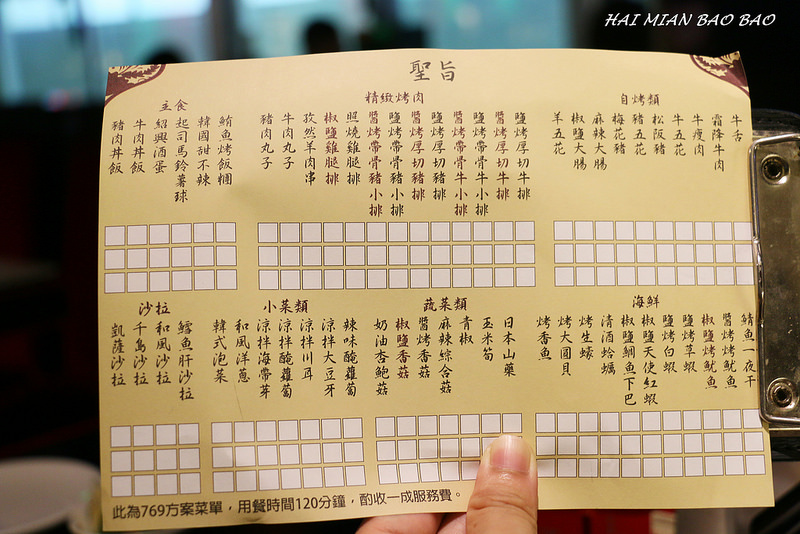 HAI MIAN BAO BAO
聖旨
自烤類
牛舌
霜降牛肉
牛瘦肉
牛五花
松阪豬
豬五花
梅花豬
麻辣大腸
椒鹽大腸
羊五花
精緻烤肉
鹽烤厚切牛排
醬烤厚切牛排
鹽烤帶骨牛小排
醬烤帶骨牛小排
鹽烤厚切豬排
醬烤厚切豬排
鹽烤帶骨豬小排
醬烤帶骨豬小排
照燒雞腿排
椒鹽雞腿排
孜然羊肉串
牛肉丸子
豬肉丸子
主食
鮪魚烤飯糰
韓國甜不辣
起司馬鈴薯球
紹興酒蛋
牛肉丼飯
豬肉丼飯
海鮮
鯖魚一夜干
醬烤魷魚
椒鹽烤魷魚
鹽烤草蝦
鹽烤白蝦
椒鹽天使紅蝦
椒鹽鯛魚下巴
清酒蛤蠣
烤生蠔
烤大圓貝
烤香魚
蔬菜類
日本山藥
玉米筍
青椒
麻辣綜合菇
醬烤香菇
椒鹽香菇
奶油杏鮑菇
小菜類
辣味醃蘿蔔
涼拌大豆牙
涼拌川耳
涼拌醃蘿蔔
涼拌海帶芽
和風洋蔥
韓式泡菜
沙拉
鱈魚肝沙拉
和風沙拉
千島沙拉
凱薩沙拉
此為769方案菜單，用餐時間120分鐘，酌收一成服務費。